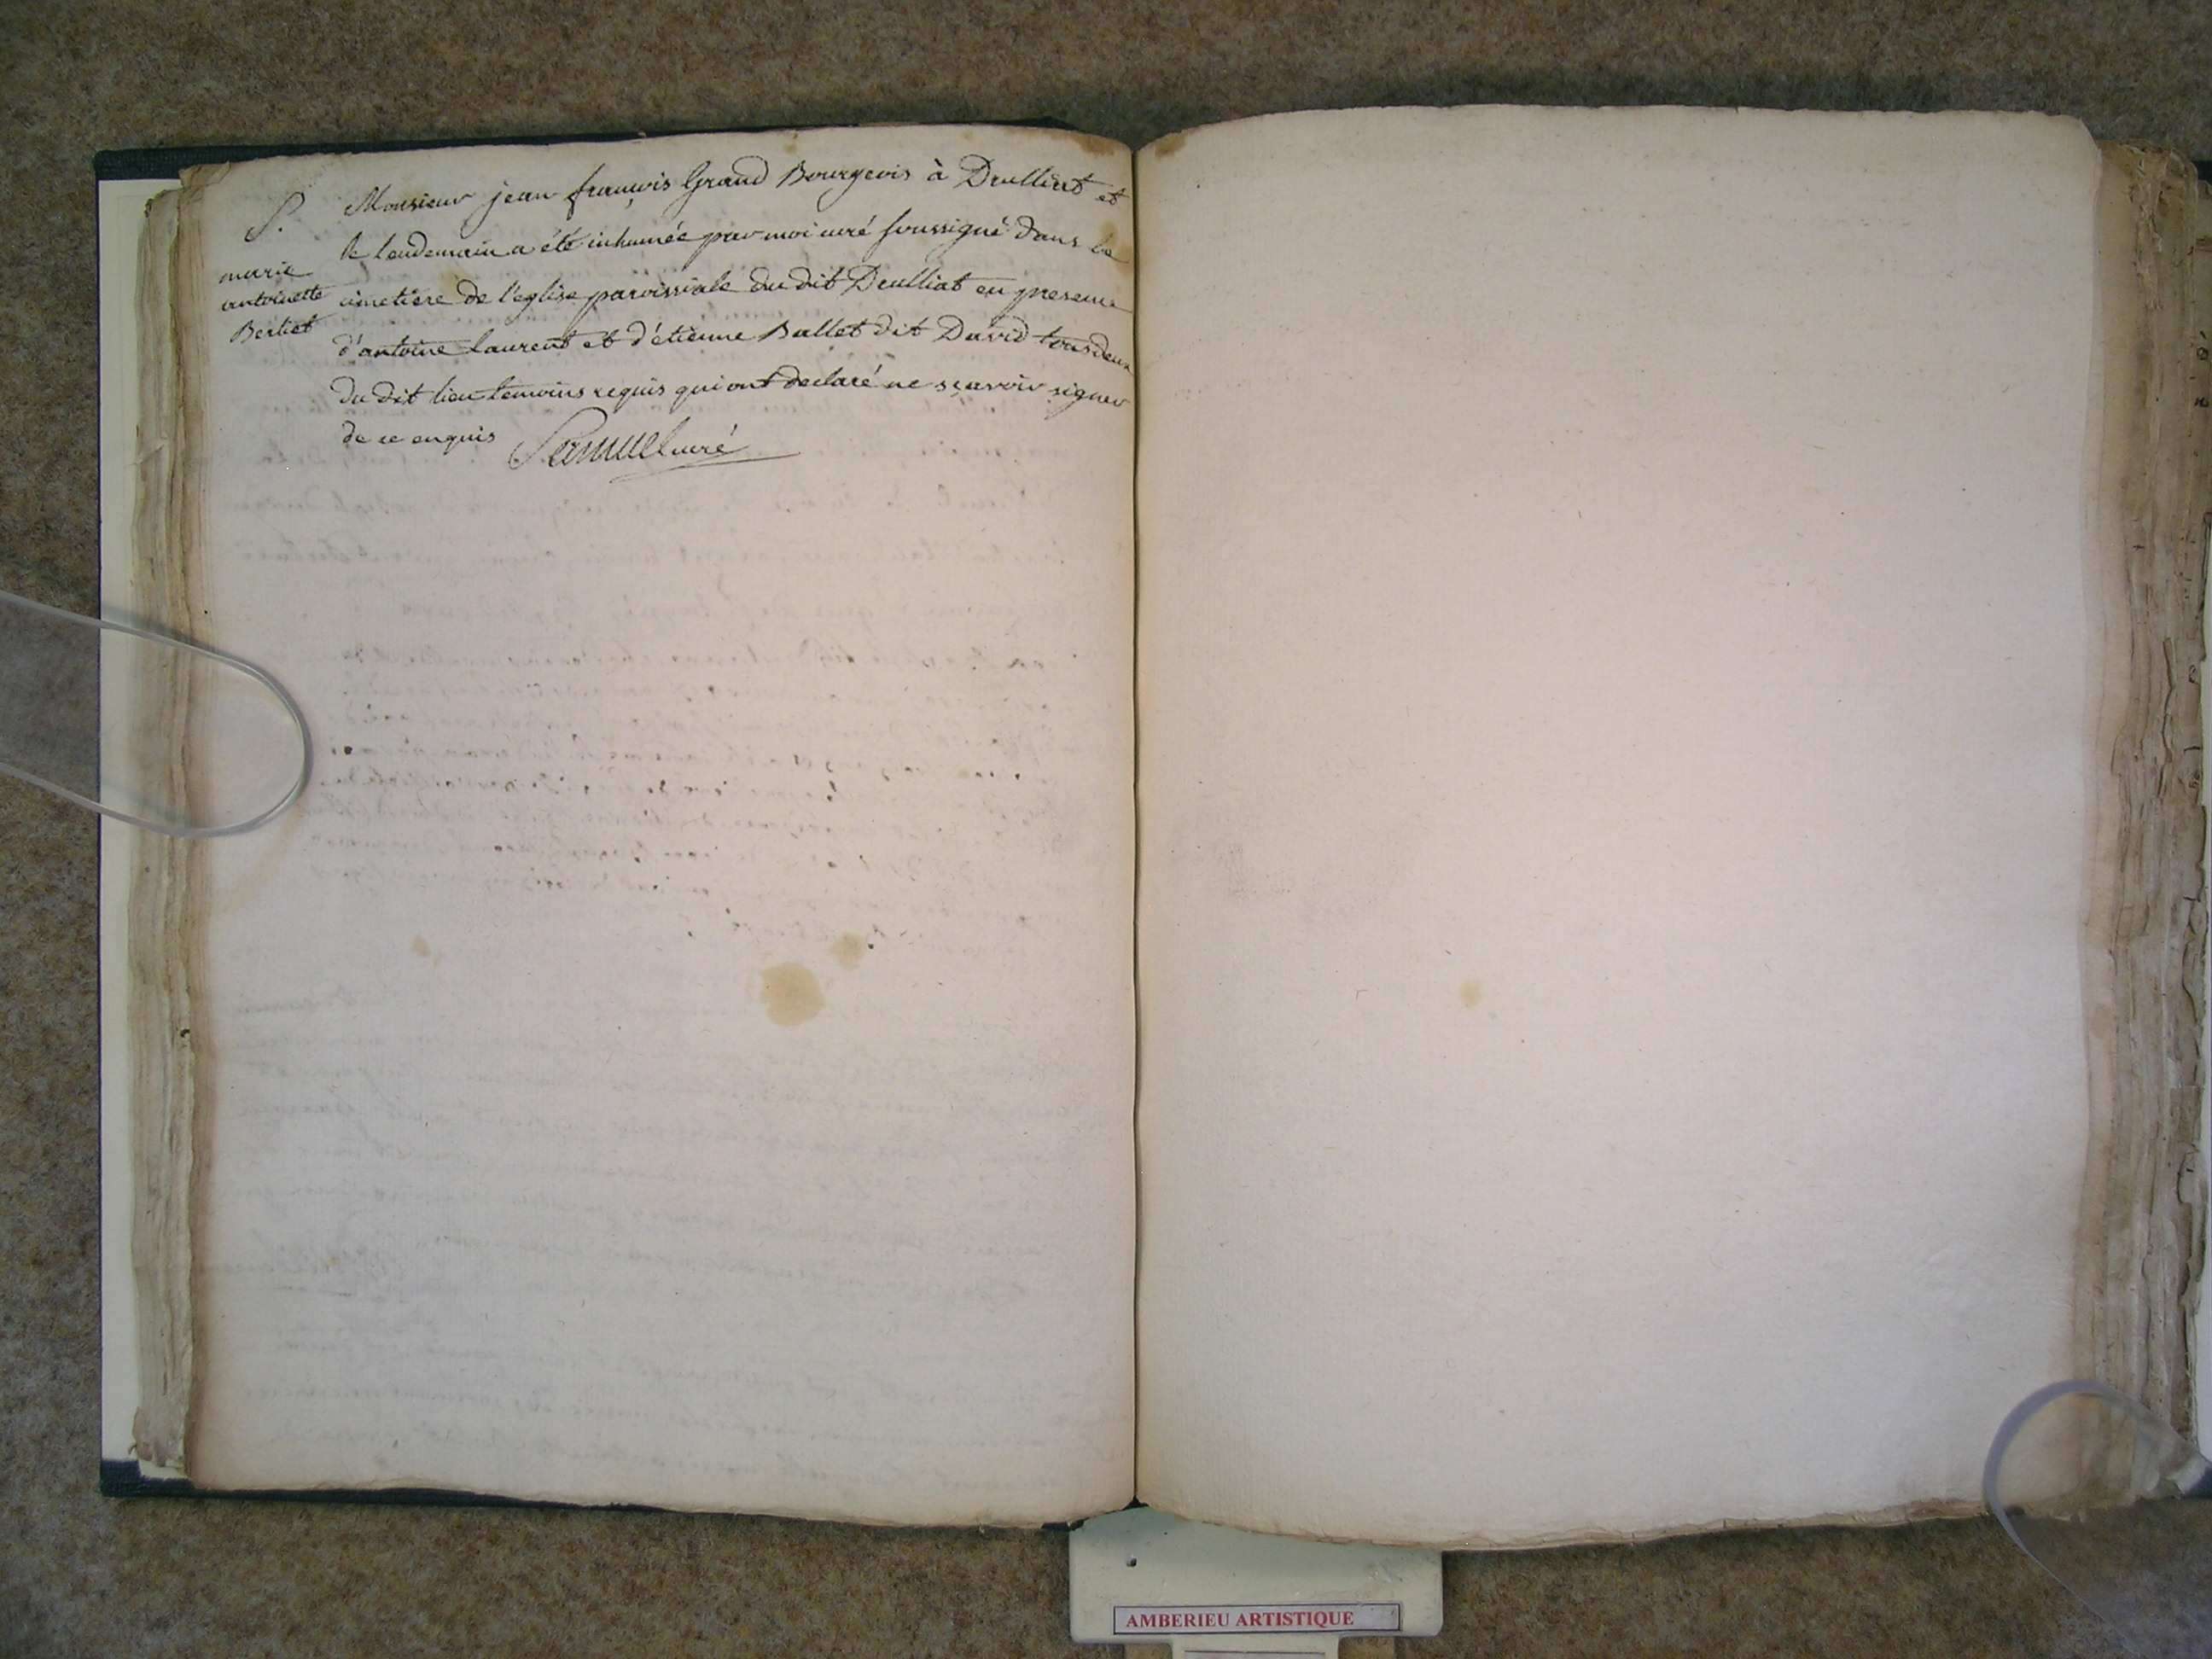 S.
marie
antoinette
Berliet
Monsieur jean françois Grand Bourgeois à Druilliat et
le lendemain a été inhumée par moi curé soussigné dans le
cimetiere de l'eglise paroissiale du dit Druilliat en presence
d'antoine Laurent et d'étienne Ballet dit David tous deux
du dit lieu temoins requis qui ont declaré ne sçavoir signer
de ce enquis Samuel curé
AMBERIEU ARTISTIQUE